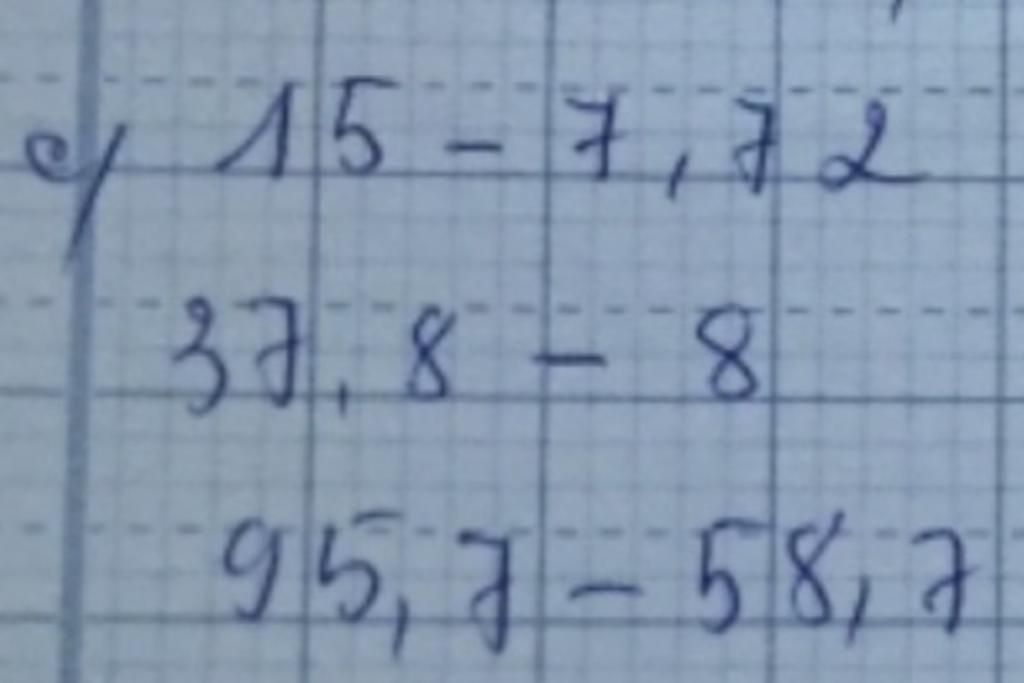 c/ 15 - 7,72
37,8 - 8
95,7 - 58,7